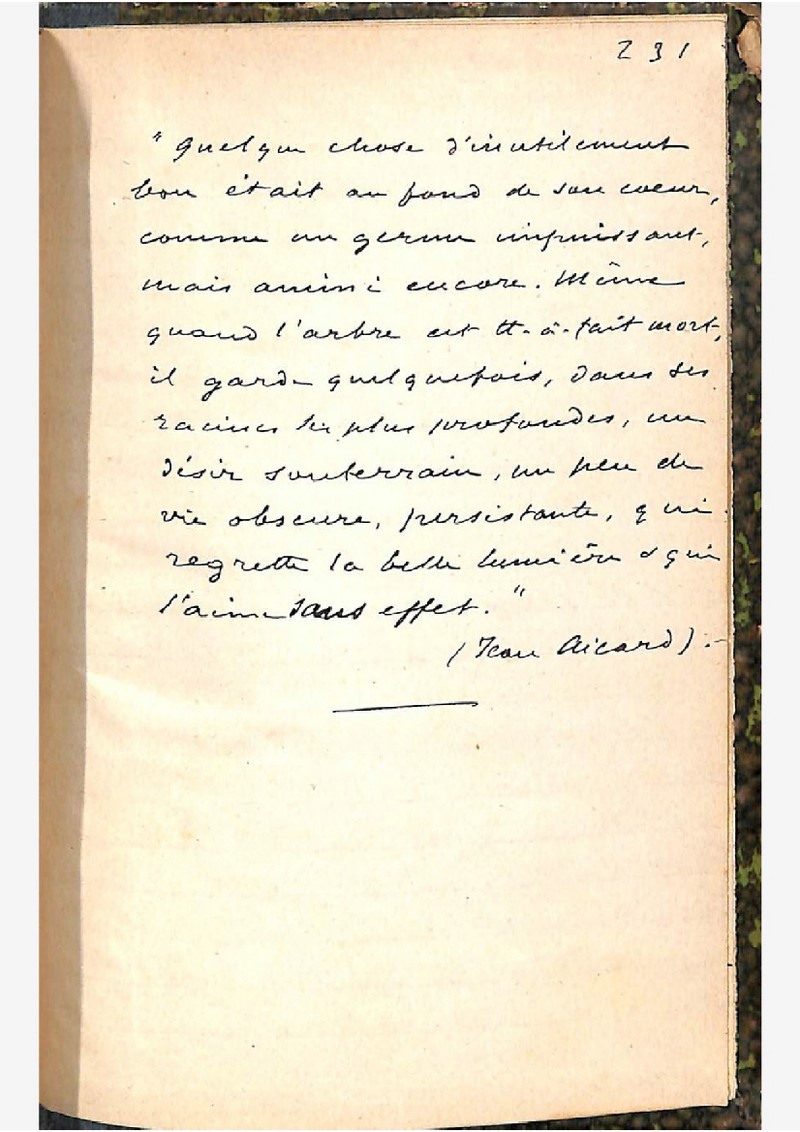 231
"Quelque chose d'inutilement
bon était au fond de son coeur,
comme un germe impuissant,
mais animé encore. Même
quand l'arbre est tt-à-fait mort,
il garde quelquefois, dans ses
racines les plus profondes, un
désir souterrain, un peu de
vie obscure, persistante, qui
regrette la belle lumière & qui
l'aime sans effet."
(Jean Aicard).-